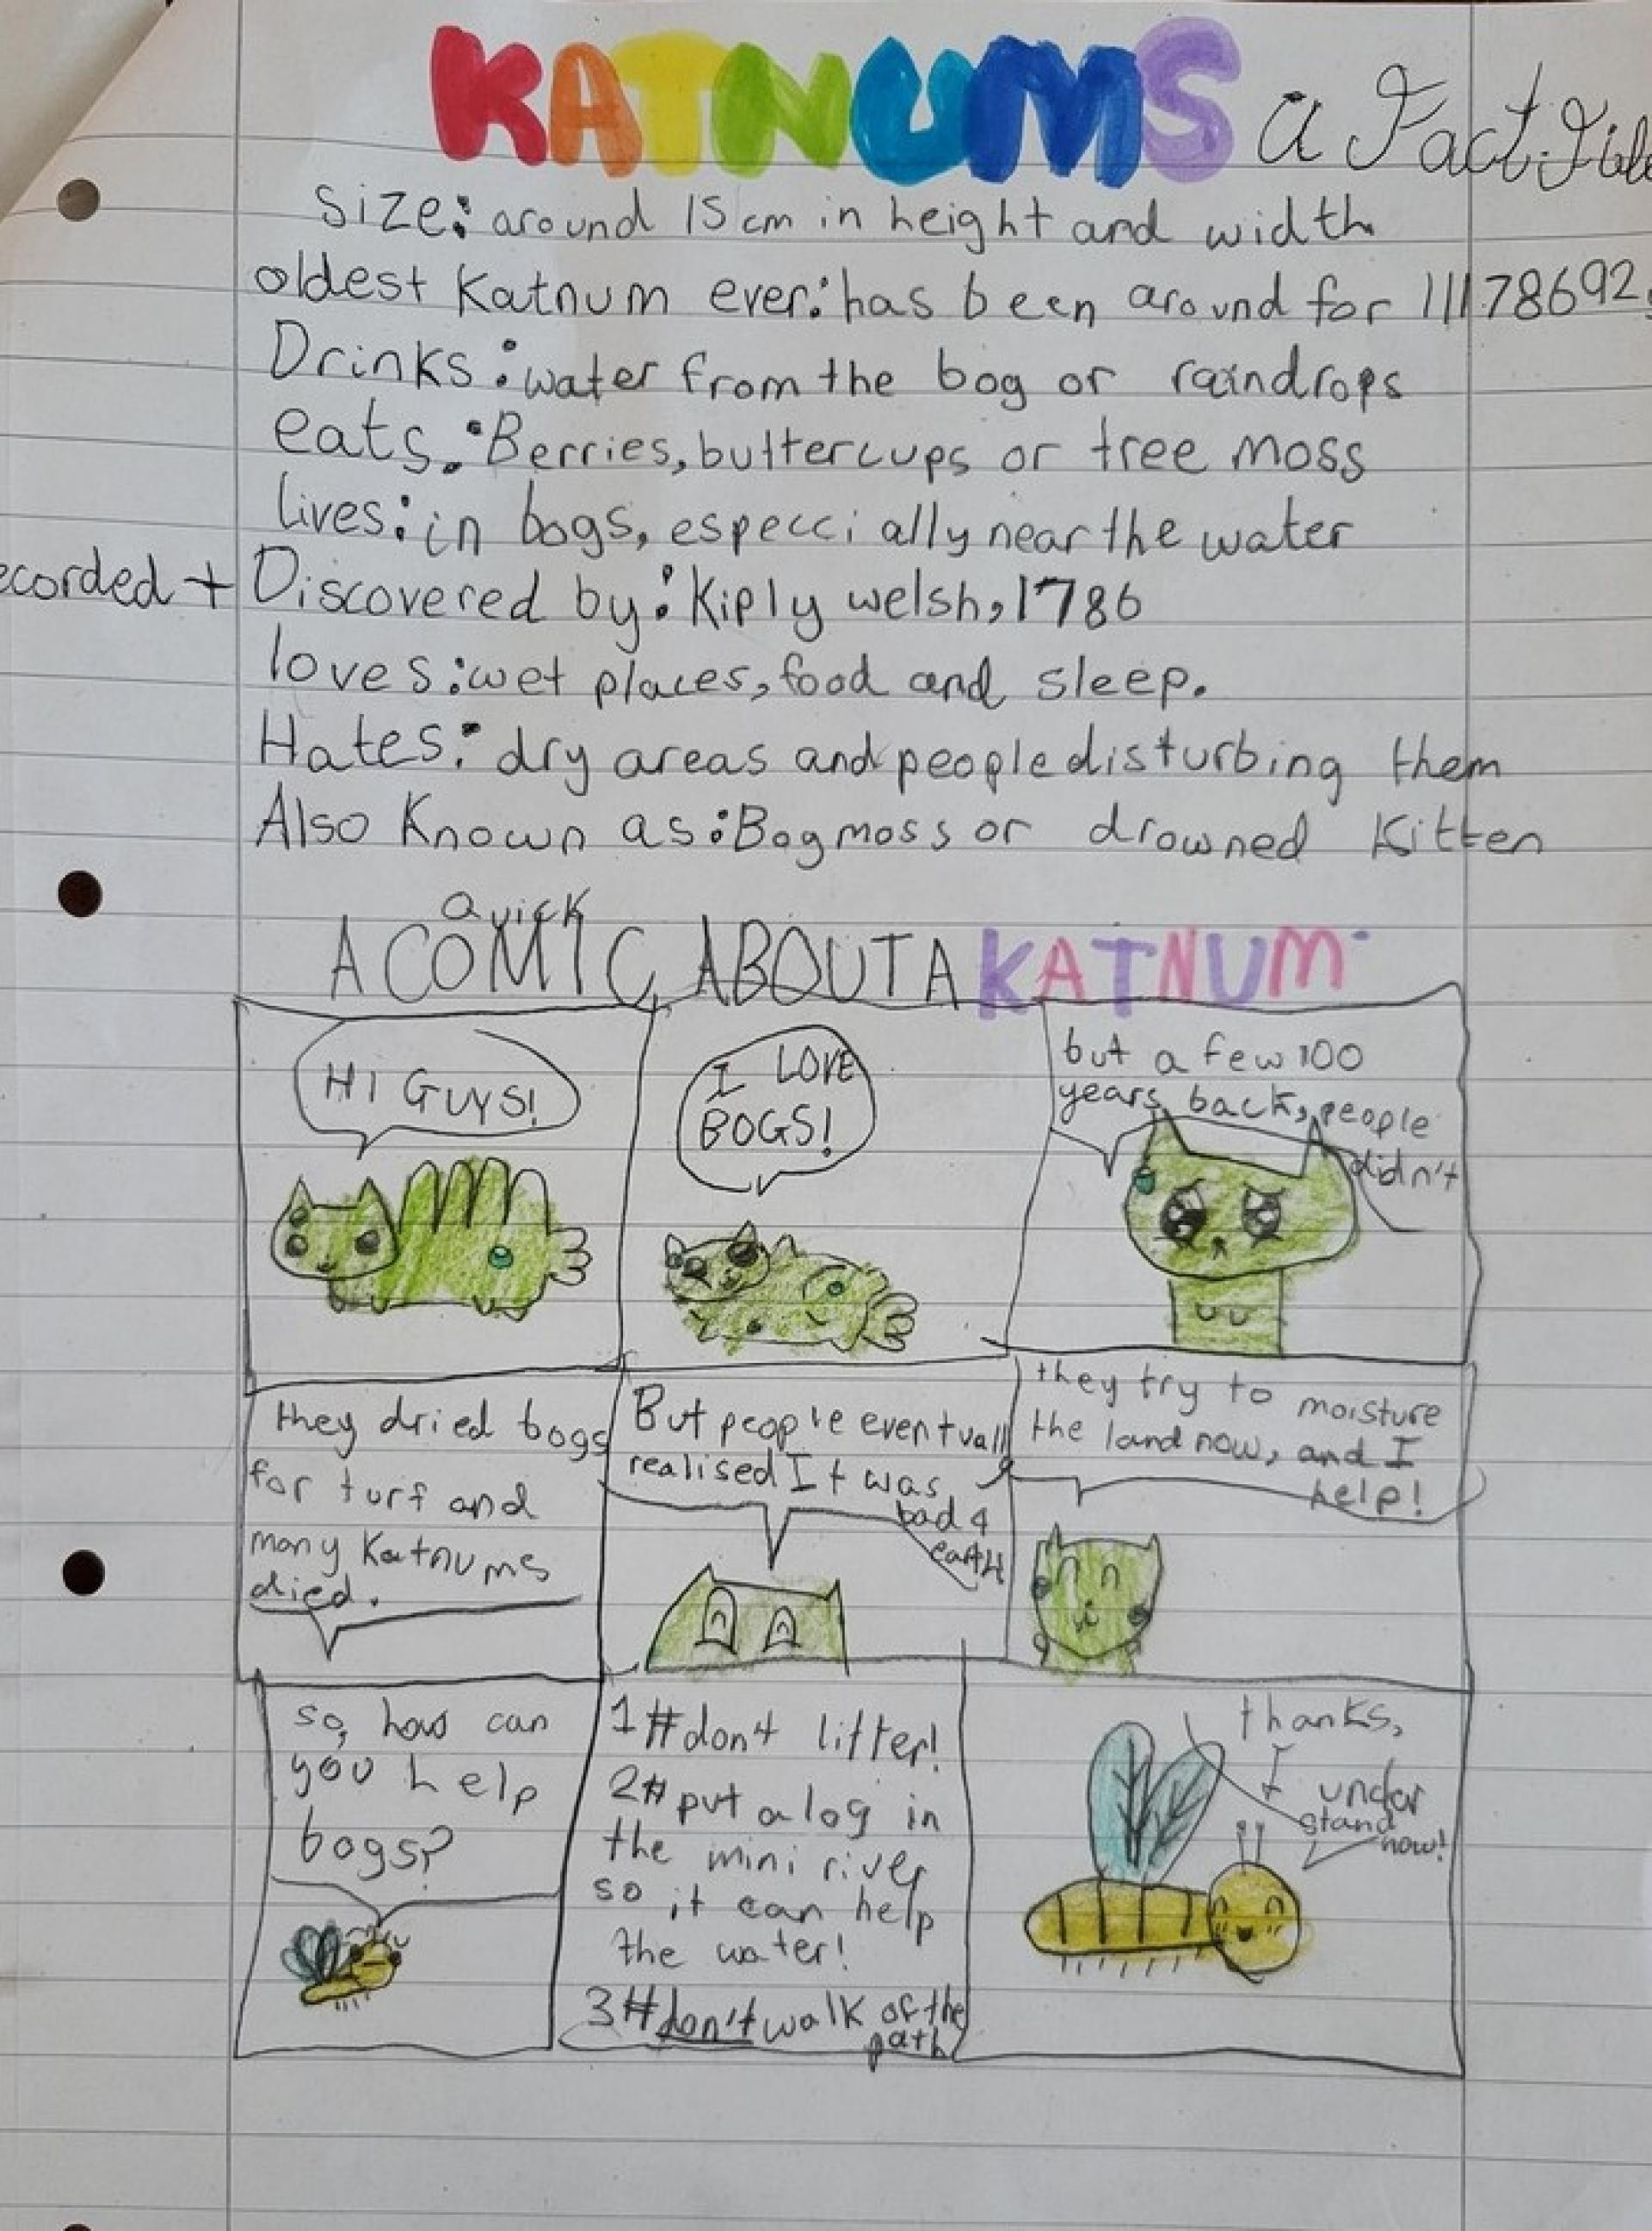 KATNUMS a Fact File
Size: around 15cm in height and width
oldest Katnum ever: has been around for 11178692
Drinks: water from the bog or raindrops
eats: Berries, buttercups or tree moss
lives: in bogs, especcially near the water
ecorded + Discovered by: Kiply welsh, 1786
loves: wet places, food and sleep.
Hates: dry areas and people disturbing them
Also Known as: Bog moss or drowned Kitten
Quick
A COMIC ABOUT A KATNUM
HI GUYS!
I LOVE
BOGS!
but a few 100
years back, people
didn't
they dried bogs
for turf and
many Katnums
died.
But people eventuall
realised It was
bad 4
eartH
they try to moisture
the land now, and I
help!
so, how can
you help
bogs?
1# don4 litter!
2# put a log in
the mini river
so it can help
the water!
3# don't walk of the
path
thanks,
I under
stand
now!